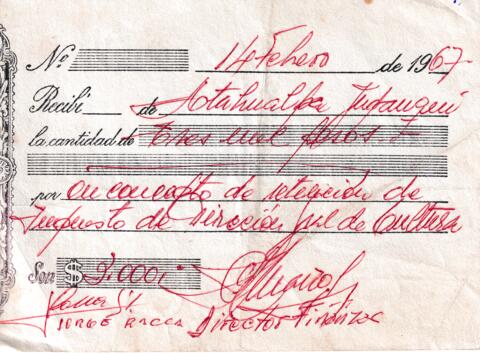 No 14 Febrero de 1967
Recibí de Atahualpa Yupanqui
la cantidad de tres mil pesos
por en concepto de retención de
Impuesto de Dirección gral de Cultura
Son $ 3.000
JORGE Director Finanzas